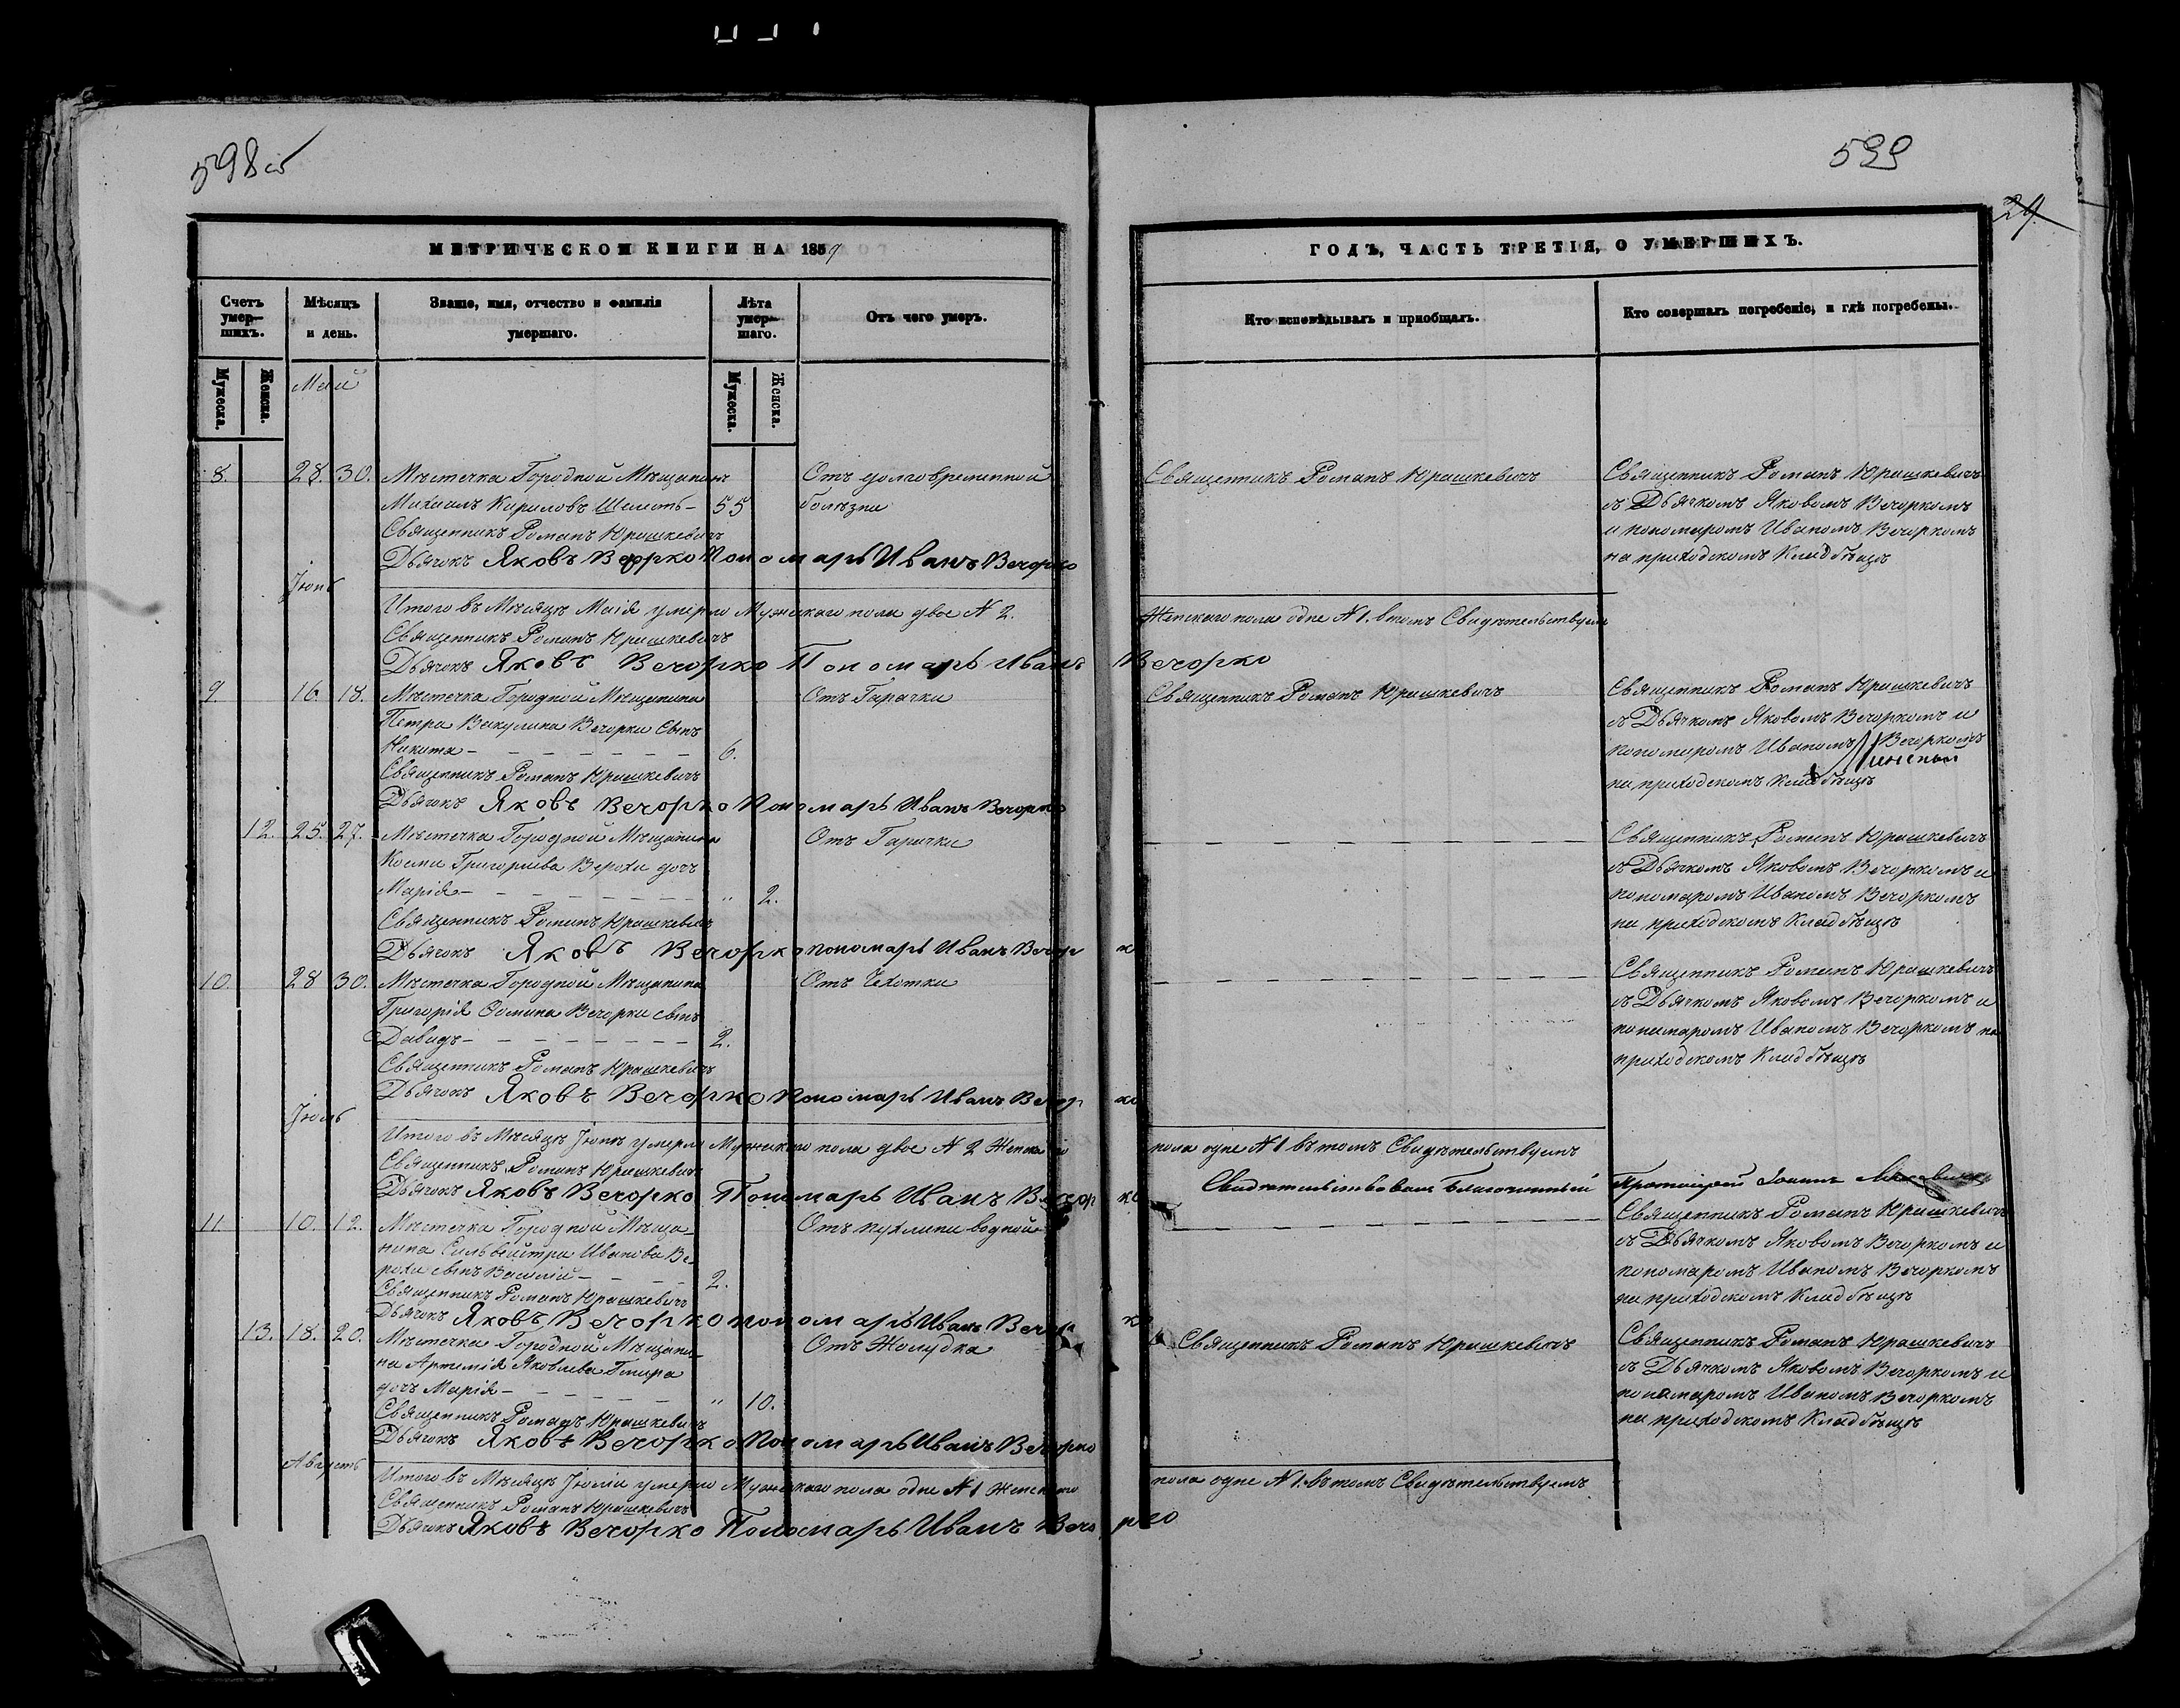 598об
599
29.
МЕТРИЧЕСКОЙ КНИГИ НА 1859
ГОДЪ, ЧАСТЬ ТРЕТІЯ, О УМЕРШИХЪ.
Счетъ умер-шихъ.
Мѣсяцъ и день.
Званіе, имя, отчество и фамилія умершаго.
Лѣта умер-шаго.
Отъ чего умеръ.
Кто исповѣдывалъ и пріобщалъ.
Кто совершалъ погребеніе, и гдѣ погребены.
Мужеска. Женска.
Мужеска. Женска.
Май
8. 28. 30. Мѣстечка Городной Мѣщанинъ
Михаилъ Кириловъ Шелестъ - 55
Отъ долговременной
болѣзни
Священникъ Романъ Юрашкевичъ
Дьячокъ Яковъ Вечорко Пономарь Иванъ Вечорко
Священникъ Романъ Юрашкевичъ
Священникъ Романъ Юрашкевичъ
съ Дьячкомъ Яковомъ Вечоркомъ
и пономаромъ Иваномъ Вечоркомъ
на приходскомъ Кладбѣщѣ
Іюнь
Итого въ Мѣсяцѣ Маія умерло Мужескаго пола двое N 2.
Женскаго пола одне N 1. втомъ Свидѣтельствуемъ
Священникъ Романъ Юрашкевичъ
Дьячокъ Яковъ Вечорко Пономарь Иванъ Вечорко
9. 16. 18. Мѣстечка Городной Мѣщанина
Петра Викулина Вечорки Сынъ
Никита - 6.
Отъ Гарачки
Священникъ Романъ Юрашкевичъ
Дьячокъ Яковъ Вечорко Пономарь Иванъ Вечорко
Священникъ Романъ Юрашкевичъ
Священникъ Романъ Юрашкевичъ
съ Дьячкомъ Яковомъ Вечоркомъ и
пономаромъ Иваномъ Вечоркомъ
на приходскомъ Кладбѣщѣ
12. 25. 27. Мѣстечка Городной Мѣщанина
Космы Григориева Верохи дочь
Марія - " 2.
Отъ Гарячки
Священникъ Романъ Юрашкевичъ
Дьячокъ Яковъ Вечорко пономарь Иванъ Вечорко
Священникъ Романъ Юрашкевичъ
съ Дьячкомъ Яковомъ Вечоркомъ и
пономаромъ Иваномъ Вечоркомъ
на приходскомъ Кладбѣщѣ
10. 28 30. Мѣстечка Городной Мѣщанина
Григорія Ѳомина Вечорки сынъ
Давидъ - 2.
Отъ Чехотки
Священникъ Романъ Юрашкевичъ
Дьячокъ Яковъ Вечорко Пономарь Иванъ Вечорко
Священникъ Романъ Юрашкевичъ
съ Дьячкомъ Яковомъ Вечоркомъ и
пономаромъ Иваномъ Вечоркомъ на
приходскомъ Кладбѣщѣ
Іюль
Итого въ Мѣсяцѣ Іюнѣ умерло Мужескаго пола двое N 2 Женскаго
пола одне N 1 вътомъ Свидѣтельствуемъ
Священникъ Романъ Юрашкевичъ
Дьячокъ Яковъ Вечорко Пономарь Иванъ Вечорко
Свидѣтельствовалъ Благочинный Протоіерей Іоаннъ
11 10. 12. Мѣстечка Городной Мѣща-
нина Сильвестра Иванова Ве-
рохи сынъ Василій - 2.
Отъ пухлини водной
Священникъ Романъ Юрашкевичъ
Дьячокъ Яковъ Вечорко пономарь Иванъ Вечорко
Священникъ Романъ Юрашкевичъ
съ Дьячкомъ Яковомъ Вечоркомъ и
пономаромъ Иваномъ Вечоркомъ
на приходскомъ Кладбѣщѣ
13. 18. 20. Мѣстечка Городной Мѣщани-
на Артемія Яковлева Гмира
дочь Марія - " 10.
Отъ Жолудка
Священникъ Романъ Юрашкевичъ
Дьячокъ Яковъ Вечорко Пономарь Иванъ Вечорко
Священникъ Романъ Юрашкевичъ
Священникъ Романъ Юрашкевичъ
съ Дьячкомъ Яковомъ Вечоркомъ и
пономаромъ Иваномъ Вечоркомъ
на приходскомъ Кладбѣщѣ
Августъ
Итого въ Мѣсяцѣ Іюліи умерло Мужескаго пола одне N 1 Женскаго
пола одне N 1. вътомъ Свидѣтельствуемъ
Священникъ Романъ Юрашкевичъ
Дьячокъ Яковъ Вечорко Пономарь Иванъ Вечорко